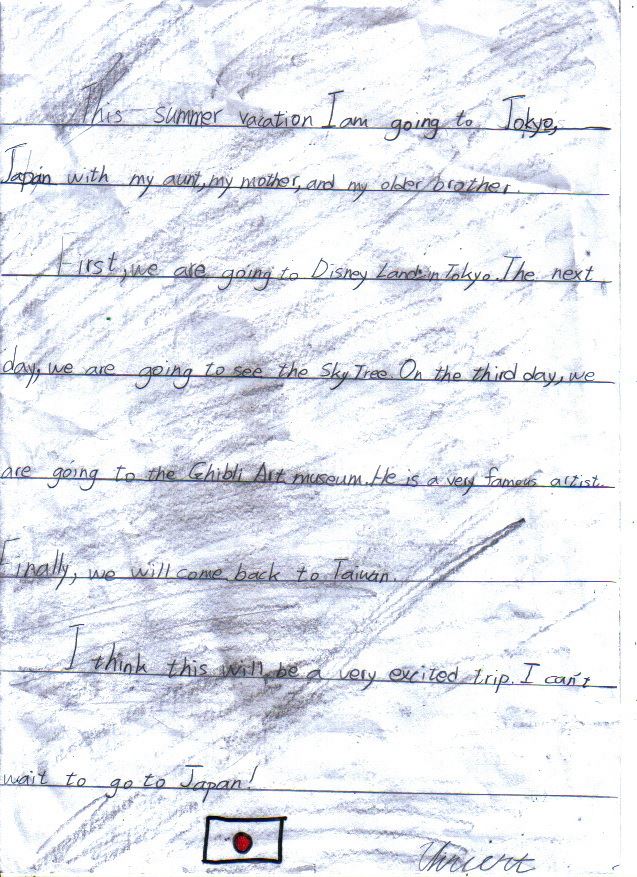 This summer vacation I am going to Tokyo,
Japan with my aunt, my mother, and my older brother.
First, we are going to Disney Land in Tokyo. The next
day, we are going to see the Sky Tree. On the third day, we
are going to the Ghibli Art museum. He is a very famous artist.
Finally, we will come back to Taiwan.
I think this will be a very excited trip. I can't
wait to go to Japan!
Vincent